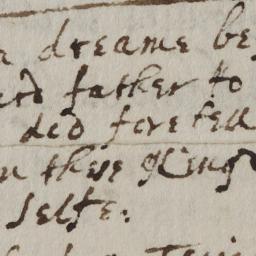 a dreame be
father to
ded fore tell
n these things
selfe: